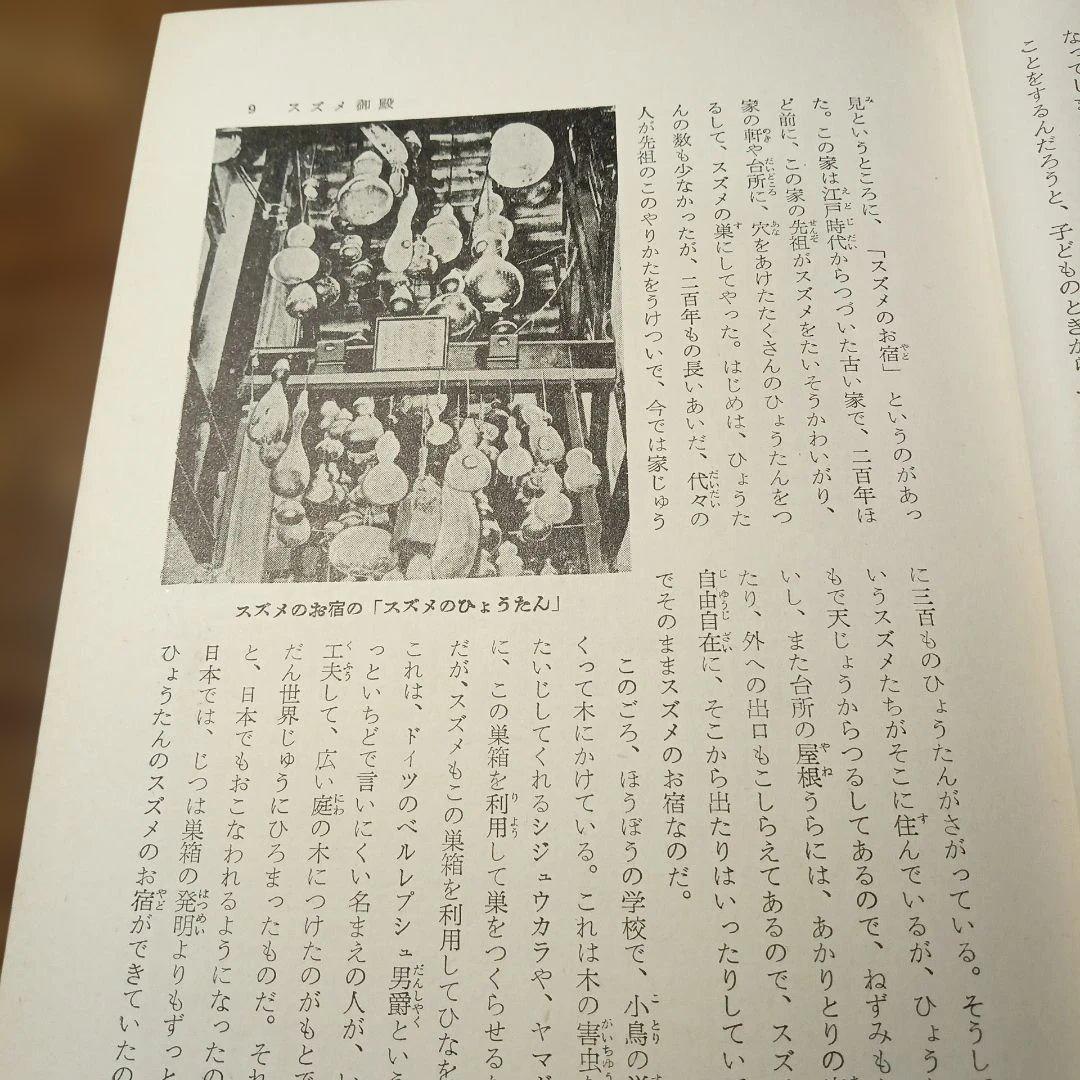 なってしま
ことをするんだろうと、子どものときから、
9 スズメ御殿
見というところに、「スズメのお宿」というのがあっ
た。この家は江戸時代からつづいた古い家で、二百年ほ
ど前に、この家の先祖がスズメをたいそうかわいがり、
家の軒や台所に、穴をあけたたくさんのひょうたんをつ
るして、スズメの巣にしてやった。はじめは、ひょうた
んの数も少なかったが、二百年もの長いあいだ、代々の
人が先祖のこのやりかたをうけついで、今では家じゅう
スズメのお宿の「スズメのひょうたん」
に三百ものひょうたんがさがっている。そうし
いうスズメたちがそこに住んでいるが、ひょう
もで天じょうからつるしてあるので、ねずみも
いし、また台所の屋根うらには、あかりとりの
たり、外への出口もこしらえてあるので、スズ
自由自在に、そこから出たりはいったりしてい
でそのままスズメのお宿なのだ。
このごろ、ほうぼうの学校で、小鳥の巣
くって木にかけている。これは木の害虫
たいじしてくれるシジュウカラや、ヤマガ
に、この巣箱を利用して巣をつくらせる
だが、スズメもこの巣箱を利用してひなを
これは、ドイツのベルレプシュ男爵という
っといちどで言いにくい名まえの人が、い
工夫して、広い庭の木につけたのがもとで
だん世界じゅうにひろまったものだ。それ
と、日本でもおこなわれるようになったの
日本では、じつは巣箱の発明よりもずっと
ひょうたんのスズメのお宿ができていたの